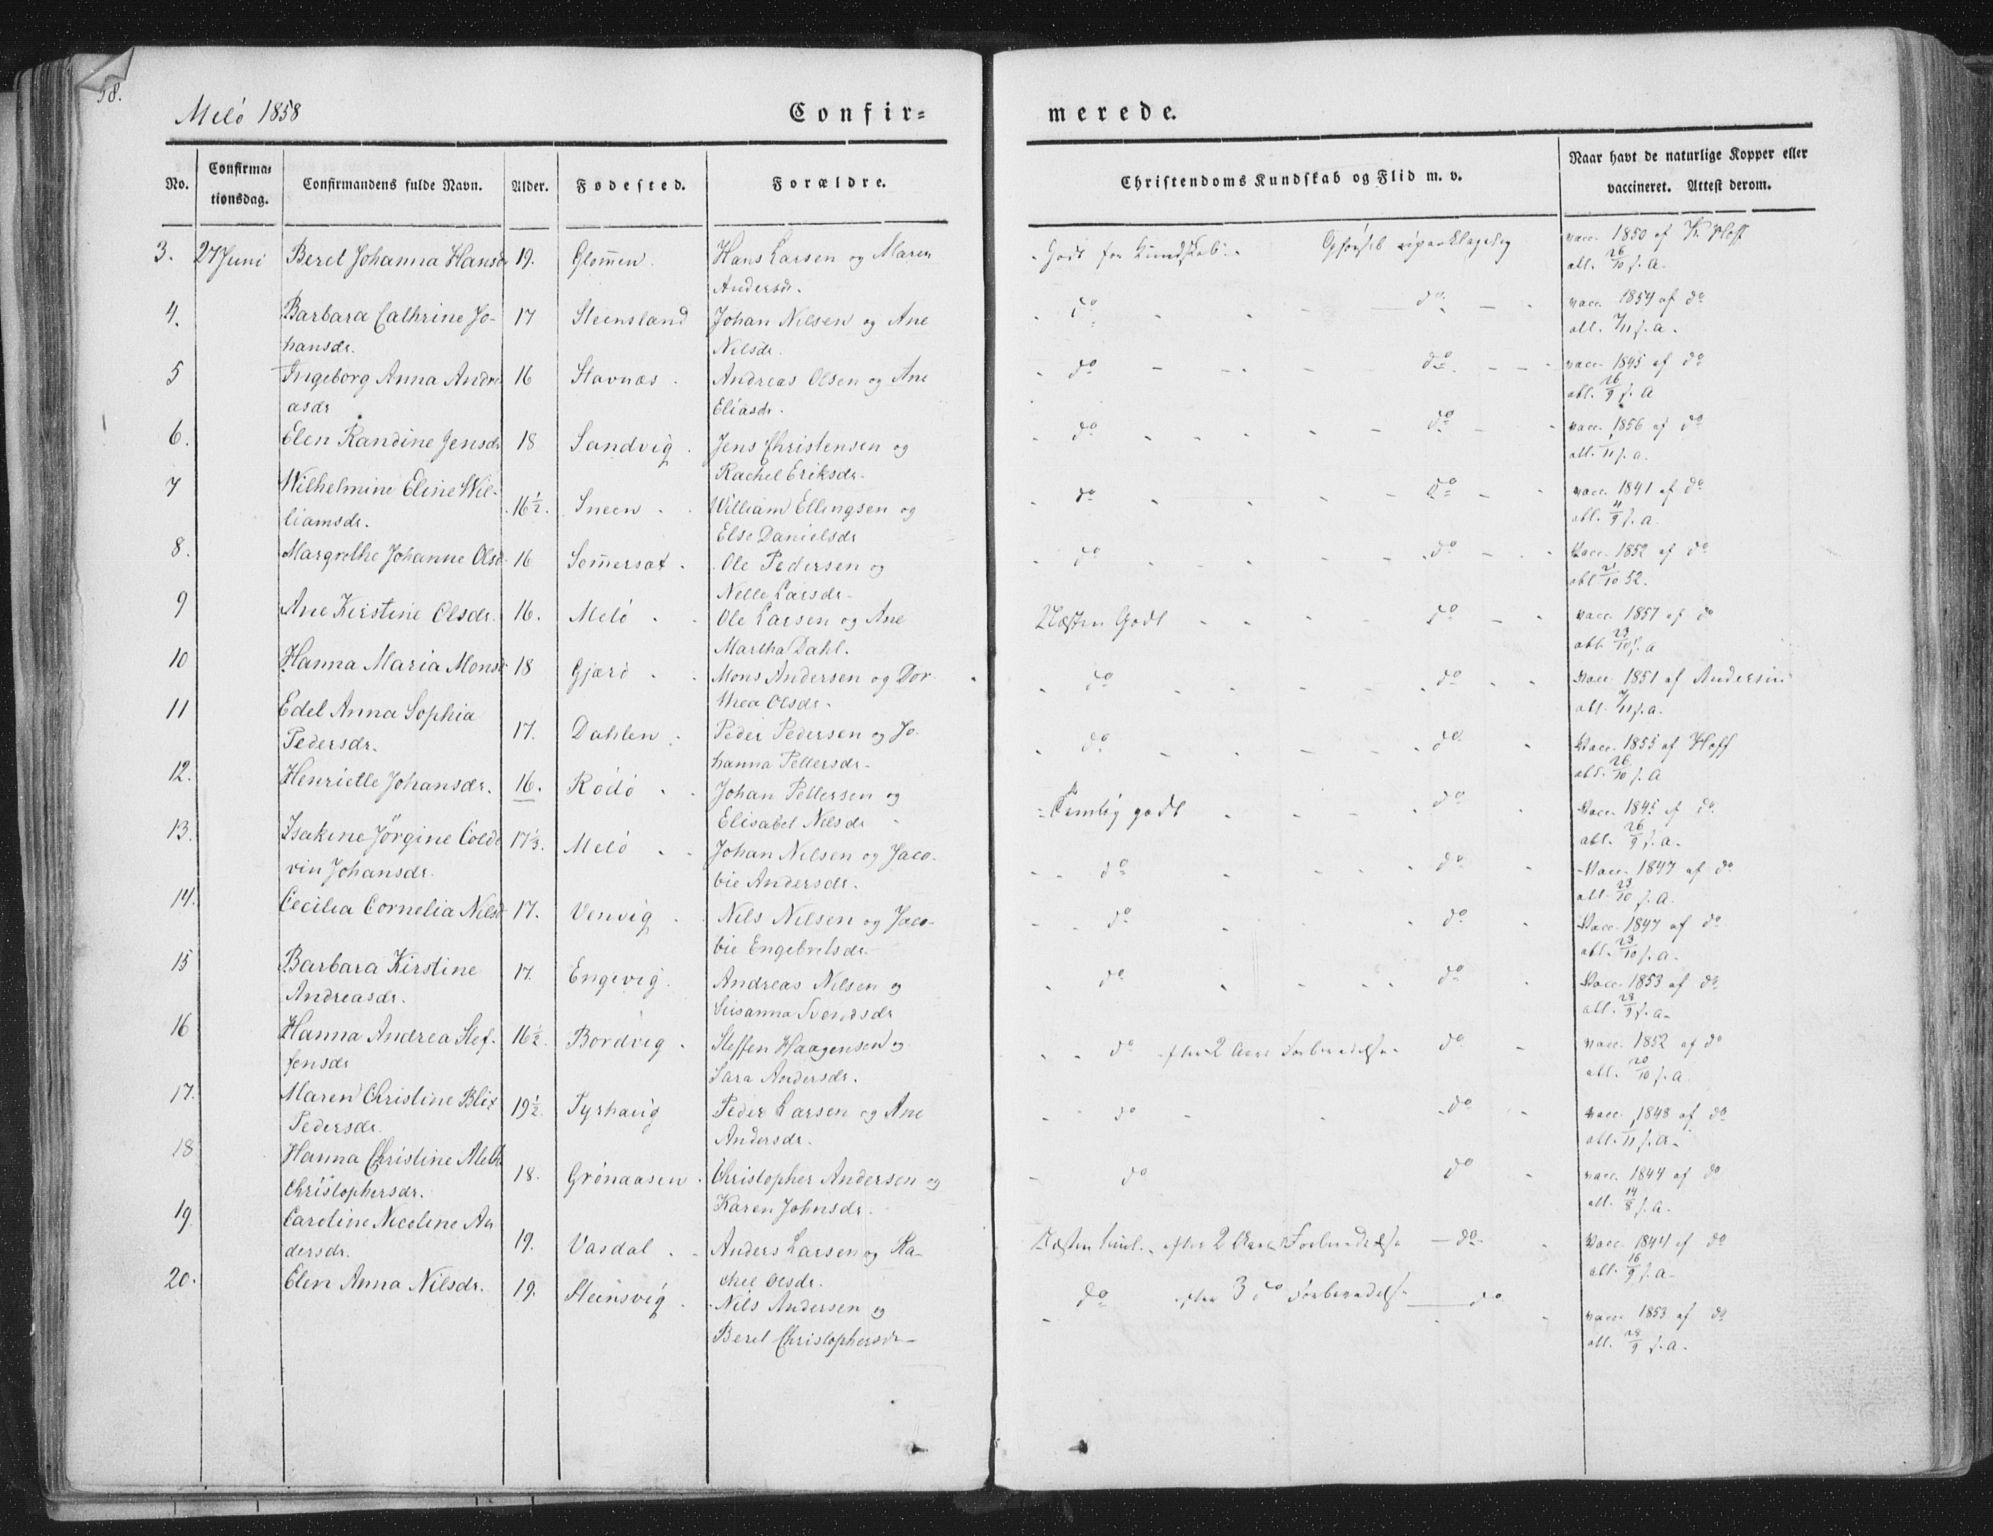 58.
Melö 1858
Confir-
merede.
No.
Confirma-
tionsdag.
Confirmandens fulde Navn.
Alder.
Fødested.
Forældre.
Christendoms Kundskab og Flid m. v.
Naar havt de naturlige Kopper eller
vaccineret. Attest derom.
3. 27 Juni Beret Johanna Hansdr 19. Glom̄en. Hans Larsen og Maren
Andersdr.
Godt for Kundskab.
vacc. 1850 af
att. 26/10 s. a.
4. Barbara Cathrine Jo-
hansdr. 17 Steensland Johan Nilsen og Ane
Nilsdr.
do do vacc. 1854 af do
att. 7/11 s. a.
5 Ingeborg Anna Andre
asdr 16 Stavnæs. Andreas Olsen og Ane
Eliasdr.
do do vacc. 1845 af do
att. 26/9 s. a
6. Elen Randine Jensdr 18 Sandvig. Jens Christensen og
Rachel Eriksdr.
do do vacc. 1856 af do
att. s. a.
7 Wilhelmine Eline Wil-
liamsdr. 16½. Sneen. William Ellingsen og
Else Danielsdr
do do vacc. 1841 af do
att. s. a.
8. Margrethe Johanne Olsd. 16 Som̄erset. Ole Pedersen og
Nelle Larsdr.
do do vacc. 1852 af do
att 21/10 52.
9 Ane Kirstine Olsdr. 16. Melö. Ole Larsen og Ane
Martha Dahl.
Næsten Godt do vacc. 1857 af do
att. 23/10 s. a
10 Hanna Maria Monsd 18 Gjærö. Mons Andersen og Dor-
thea Olsdr.
do do vacc. 1851 af Andersen
att. 7/11 s. a.
11 Edel Anna Sophia
Pedersdr. 17. Dahlen. Peder Pedersen og Jo-
hanna Pettersdr.
do do vacc. 1855 af Hoff
att. 26/10 s. a
12. Henriette Johansdr. 16. Rödö. Johan Pettersen og
Elisabet Nilsdr
Temlig godt do vacc. 1845 af do.
att. 26/9 s. a.
13. Isakine Jörgine Colde
vin Johansdr. 17⅓. Melö. Johan Nilsen og Jaco-
bie Andersdr.
do do vacc. 1847 af do
att. 23/10 s. a.
14. Cecilia Cornelia Nilsd 17. Venvig. Nils Nilsen og Jaco-
bie Engebretsdr.
do do vacc. 1847 af do
att. 23/10 s. a.
15 Barbara Kirstine
Andreasdr. 17. Engevig. Andreas Nilsen og
Susanna Svendsdr
do do vacc. 1853 af do
att. 28/9 s. a.
16 Hanna Andrea Stef-
fensdr 16½. Bordvig. Steffen Haagensen og
Sara Andersdr.
do efter 2 Aars Forberedelse do vacc. 1852 af do
att. 20/10 s. a.
17. Maren Christine Blix
Pedersdr. 19½. Tyrhaug Peder Larsen og Ane
Andersdr.
do do vacc. 1848 af do
att. s. a.
18 Hanna Christine
Christophersdr. 18. Grönaasen. Christopher Andersen og
Karen Johnsdr.
do do vacc. 1844 af do
att. 14/8 s. a.
19 Caroline Nicoline An
dersdr. 19. Vasdal. Anders Larsen og Ra-
chel Olsdr.
Næsten efter 2 Aars Forberedelse do vacc. 1844 af do
att. 16/9 s. a.
20. Elen Anna Nilsdr. 19. Steinsvig. Nils Andersen og
Beret Christophersdr
do efter 3 do Forberedelse do vacc. 1853 af do
att. 28/9 s. a.